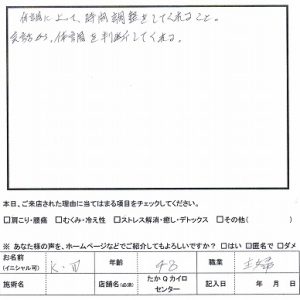 体調によって、時間調整をしてくれること。
会話から、体調を判断してくれる。
本日、ご来店された理由に当てはまる項目をチェックしてください。
□肩こり・腰痛 □むくみ・冷え性 □ストレス解消・癒し・デトックス □その他( )
※ あなた様の声を、ホームページなどでご紹介してもよろしいですか？ □はい □匿名で □ダメ
お名前(イニシャル可) K.田 年齢 48 職業 主婦
施術名 店舗名(必須) たかQカイロセンター 記入日 年 月 日